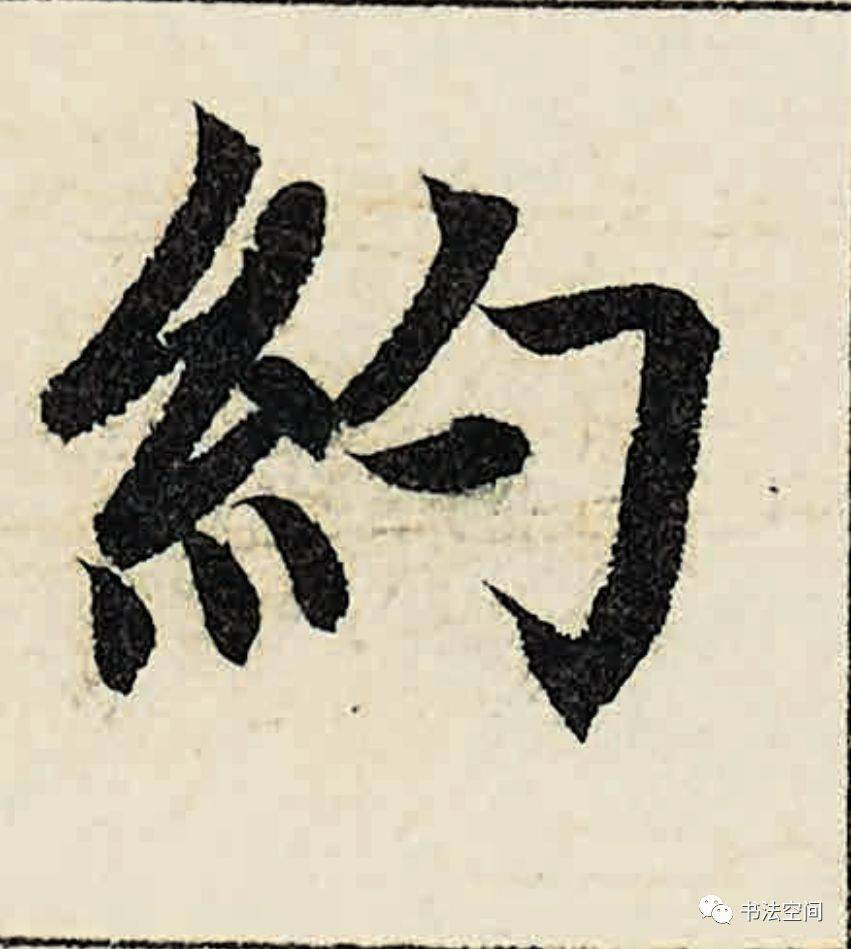 約
书法空间